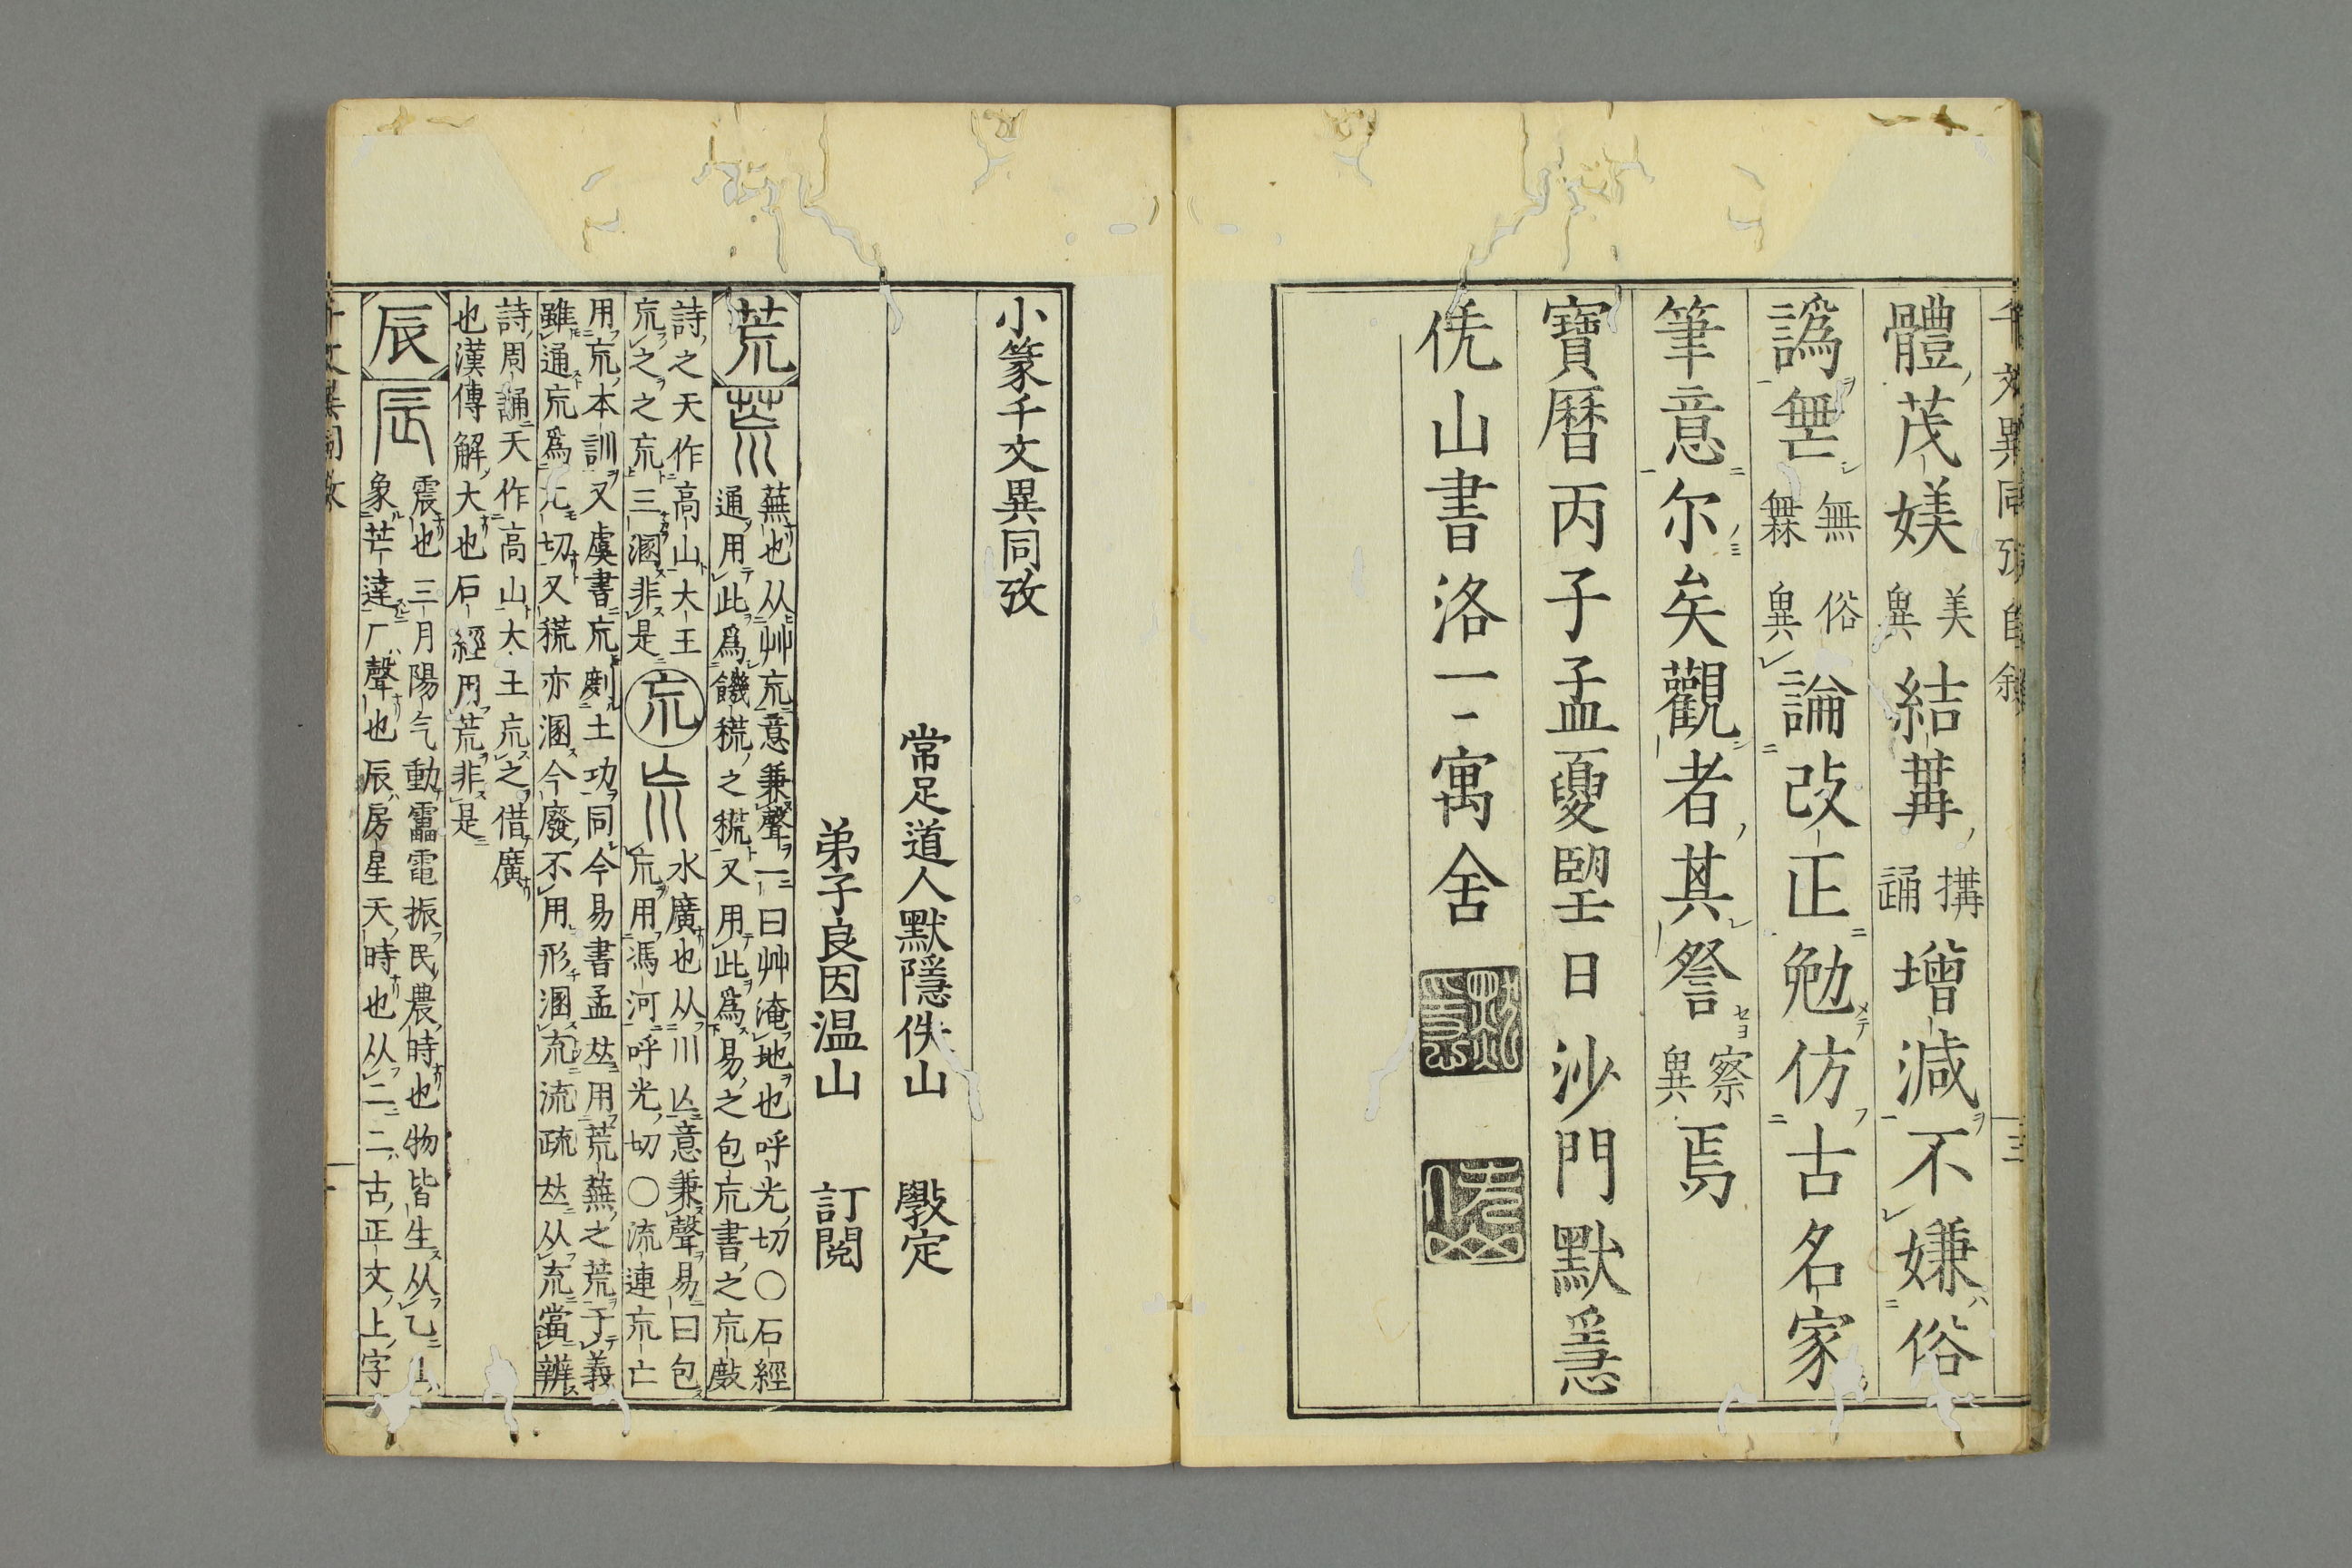 千文異同攷自敘
體茂媄美異結冓構䛻增減不嫌俗
譌𣞤無𣞣俗異論改正勉仿古名家
筆意尔矣觀者其詧察異焉
寶曆丙子孟夏朢日沙門默㥯
侁山書洛一一寓舍
三
小篆千文異同攷
常足道人默隱佚山 斅定
弟子良因温山 訂閲
荒
蕪也从艸巟意兼聲一曰艸淹地也呼光切〇石經
通用此爲饑䆲之䆲又用此爲易之包巟書之巟度
詩之天作高山大王
巟之之巟三溷非是
巟
水廣也从川亾意兼聲易曰包
巟用馮河呼光切〇流連巟亡
用巟本訓又虞書巟劇土功同今易書孟𠀤用荒蕪之荒于義
雖通巟爲亢切又䆲亦溷今廢不用形溷㐬流疏𠀤从㐬當辨
詩周誦天作高山大王巟之借廣
也漢傳解大也石經用荒非是
辰
震也三月陽气動靁電振民農時也物皆生从乙匕
象芒達厂聲也辰房星天時也从二二古正文上字
千文異同攷
一